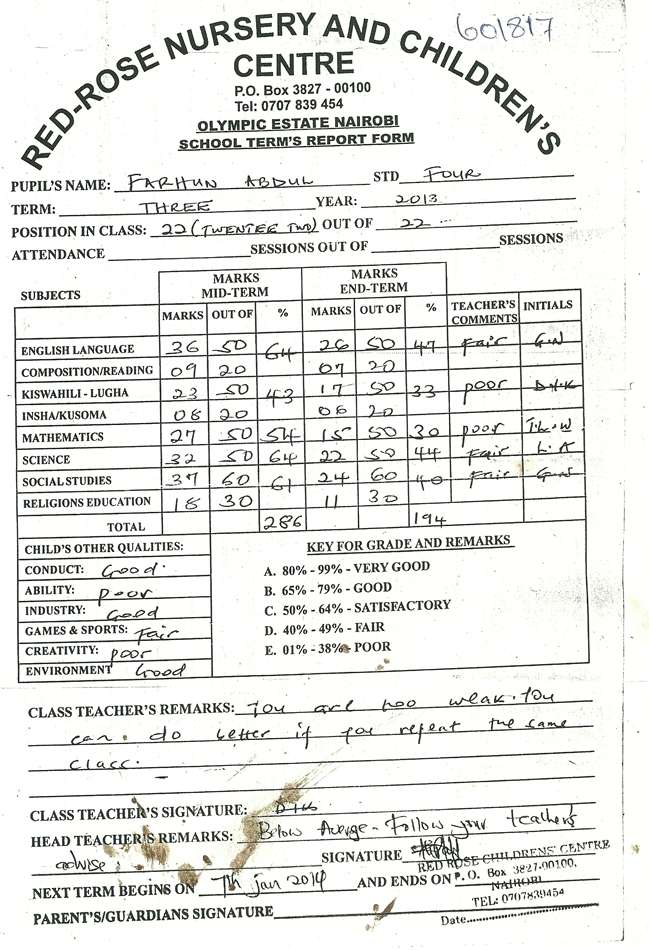 601817
RED-ROSE NURSERY AND CHILDREN'S
CENTRE
P.O. Box 3827 - 00100
Tel: 0707 839 454
OLYMPIC ESTATE NAIROBI
SCHOOL TERM'S REPORT FORM
PUPIL'S NAME: FARHUN ABDUL STD FOUR
TERM: THREE YEAR: 2013
POSITION IN CLASS: 22 (TWENTEE TWO) OUT OF 22
ATTENDANCE SESSIONS OUT OF SESSIONS
SUBJECTS MARKS MID-TERM MARKS END-TERM
MARKS OUT OF % MARKS OUT OF % TEACHER'S COMMENTS INITIALS
ENGLISH LANGUAGE 36 50 64 26 50 47 Fair G.N
COMPOSITION/READING 09 20 07 20
KISWAHILI - LUGHA 23 50 43 17 50 33 poor
INSHA/KUSOMA 08 20 06 20
MATHEMATICS 27 50 54 15 50 30 poor T.L.W
SCIENCE 32 50 64 22 50 44 Fair L.A
SOCIAL STUDIES 37 60 61 24 60 40 Fair G.N
RELIGIONS EDUCATION 18 30 11 30
TOTAL 286 194
CHILD'S OTHER QUALITIES:
CONDUCT: Good.
ABILITY: poor
INDUSTRY: Good
GAMES & SPORTS: Fair
CREATIVITY: poor
ENVIRONMENT Good
KEY FOR GRADE AND REMARKS
A. 80% - 99% - VERY GOOD
B. 65% - 79% - GOOD
C. 50% - 64% - SATISFACTORY
D. 40% - 49% - FAIR
E. 01% - 38% - POOR
CLASS TEACHER'S REMARKS: You are too weak. You
can do better if you repeat the same
class.
CLASS TEACHER'S SIGNATURE:
HEAD TEACHER'S REMARKS: Below Average - Follow your teacher's
advise. SIGNATURE
RED ROSE CHILDRENS' CENTRE
NEXT TERM BEGINS ON 7th Jan 2014 AND ENDS ON
P. O. Box 3827-00100,
NAIROBI
TEL: 0707839454
PARENT'S/GUARDIANS SIGNATURE
Date